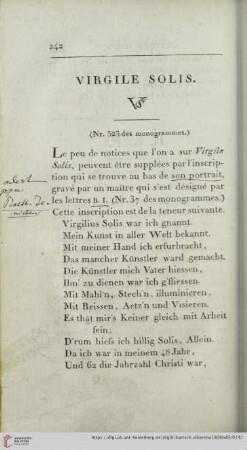 242
VIRGILE SOLIS.
(Nr. 323 des monogrammes.)
Le peu de notices que l'on a sur Virgile
Solis, peuvent être suppléées par l'inscrip-
tion qui se trouve au bas de son portrait,
gravé par un maitre qui s'est désigné par
les lettres B. I. (Nr. 37 des monogrammes.)
Cette inscription est de la teneur suivante.
Virgilius Solis war ich gnannt.
Mein Kunst in aller Welt bekannt.
Mit meiner Hand ich erfurbracht,
Das mancher Künstler ward gemacht.
Die Künstler mich Vater hiessen,
Ihn' zu dienen war ich g'fliessen.
Mit Mahl'n, Stech'n, illuminieren,
Mit Reissen, Aetz'n und Visieren.
Es thät mir's Keiner gleich mit Arbeit
sein;
D'rum hiess ich billig Solis, Allein.
Da ich war in meinem 48 Jahr,
Und 62 die Jahrzahl Christi war,